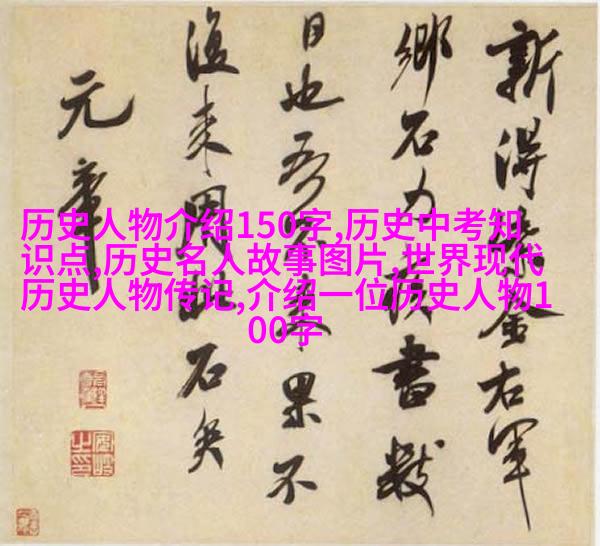 历史人物介绍150字,历史中考知
识点,历史名人故事图片,世界现代
历史人物传记,介绍一位历史人物1
00字
新得紫金右軍
鄉石力疾書數
日也吾不來果不
復來用此石矣
元章